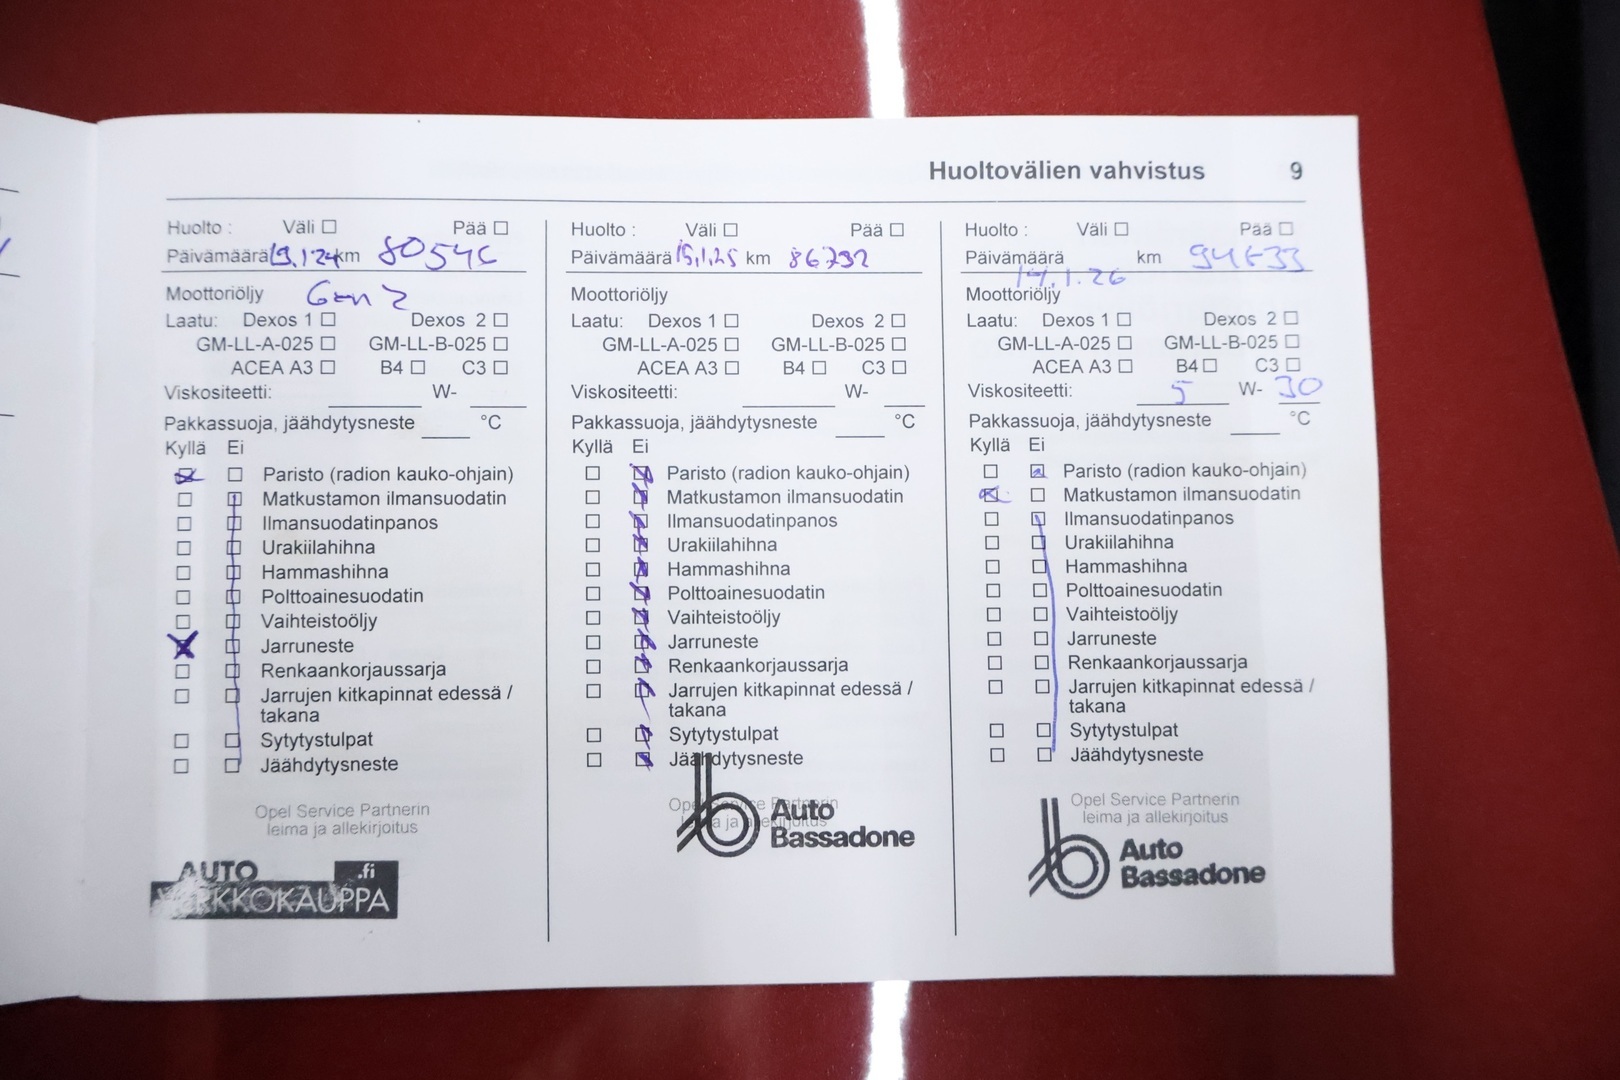 Huoltovälien vahvistus 9
Huolto : Väli ☐ Pää ☐
Päivämäärä 19.1.24 km 80546
Moottoriöljy Gen 2
Laatu: Dexos 1 ☐ Dexos 2 ☐
GM-LL-A-025 ☐ GM-LL-B-025 ☐
ACEA A3 ☐ B4 ☐ C3 ☐
Viskositeetti: W-
Pakkassuoja, jäähdytysneste °C
Kyllä Ei
Paristo (radion kauko-ohjain)
Matkustamon ilmansuodatin
Ilmansuodatinpanos
Urakiilahihna
Hammashihna
Polttoainesuodatin
Vaihteistoöljy
Jarruneste
Renkaankorjaussarja
Jarrujen kitkapinnat edessä /
takana
Sytytystulpat
Jäähdytysneste
Opel Service Partnerin
leima ja allekirjoitus
AUTO .fi
VERKKOKAUPPA
Huolto : Väli ☐ Pää ☐
Päivämäärä 15.1.25 km 86792
Moottoriöljy
Laatu: Dexos 1 ☐ Dexos 2 ☐
GM-LL-A-025 ☐ GM-LL-B-025 ☐
ACEA A3 ☐ B4 ☐ C3 ☐
Viskositeetti: W-
Pakkassuoja, jäähdytysneste °C
Kyllä Ei
Paristo (radion kauko-ohjain)
Matkustamon ilmansuodatin
Ilmansuodatinpanos
Urakiilahihna
Hammashihna
Polttoainesuodatin
Vaihteistoöljy
Jarruneste
Renkaankorjaussarja
Jarrujen kitkapinnat edessä /
takana
Sytytystulpat
Jäähdytysneste
Opel Service Partnerin
leima ja allekirjoitus
Auto
Bassadone
Huolto : Väli ☐ Pää ☐
Päivämäärä km
14.1.26
Moottoriöljy
Laatu: Dexos 1 ☐ Dexos 2 ☐
GM-LL-A-025 ☐ GM-LL-B-025 ☐
ACEA A3 ☐ B4 ☐ C3 ☐
Viskositeetti: 5 W- 30
Pakkassuoja, jäähdytysneste °C
Kyllä Ei
Paristo (radion kauko-ohjain)
Matkustamon ilmansuodatin
Ilmansuodatinpanos
Urakiilahihna
Hammashihna
Polttoainesuodatin
Vaihteistoöljy
Jarruneste
Renkaankorjaussarja
Jarrujen kitkapinnat edessä /
takana
Sytytystulpat
Jäähdytysneste
Opel Service Partnerin
leima ja allekirjoitus
Auto
Bassadone